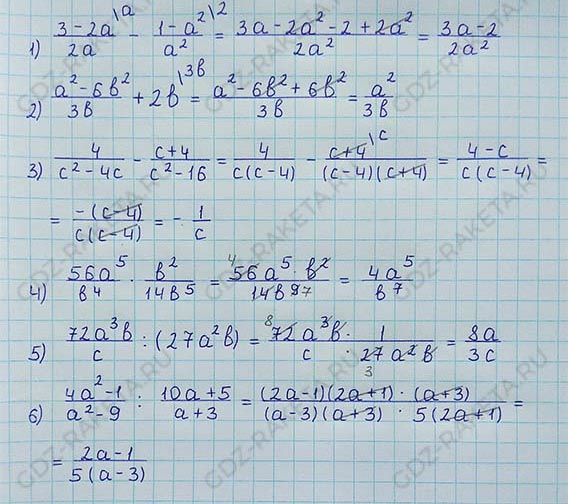 1) (3-2a)/2a \a - (1-a²)/a² \2 = (3a-2a²-2+2a²)/2a² = (3a-2)/2a²
2) (a²-6b²)/3b + 2b \3b = (a²-6b²+6b²)/3b = a²/3b
3) 4/(c²-4c) - (c+4)/(c²-16) = 4/(c(c-4)) - (c+4)/((c-4)(c+4)) \c = (4-c)/(c(c-4)) =
= -(c-4)/(c(c-4)) = - 1/c
4) 56a⁵/b⁴ · b²/14b⁵ = 4 56a⁵·b²/14b⁹ 7 = 4a⁵/b⁷
5) 72a³b/c : (27a²b) = 8 72a³b·1/c·27a²b 3 = 8a/3c
6) (4a²-1)/(a²-9) : (10a+5)/(a+3) = (2a-1)(2a+1)·(a+3)/(a-3)(a+3)·5(2a+1) =
= (2a-1)/5(a-3)
GDZ-RAKETA.RU